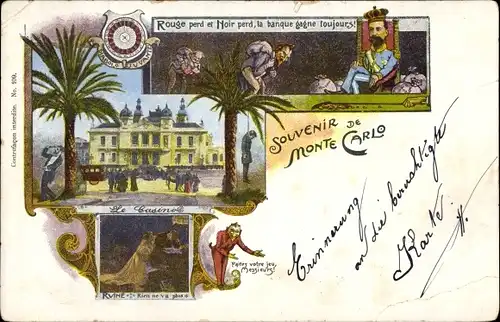 Rouge perd et Noir perd, la banque gagne toujours!
Contrefaçon interdite. No. 109.
SOUVENIR DE
MONTE CARLO
Le Casino
Faites votre jeu,
Messieurs!
RUINE - Rien ne va plus
Erinnerung
an die berüchtigte
Karte